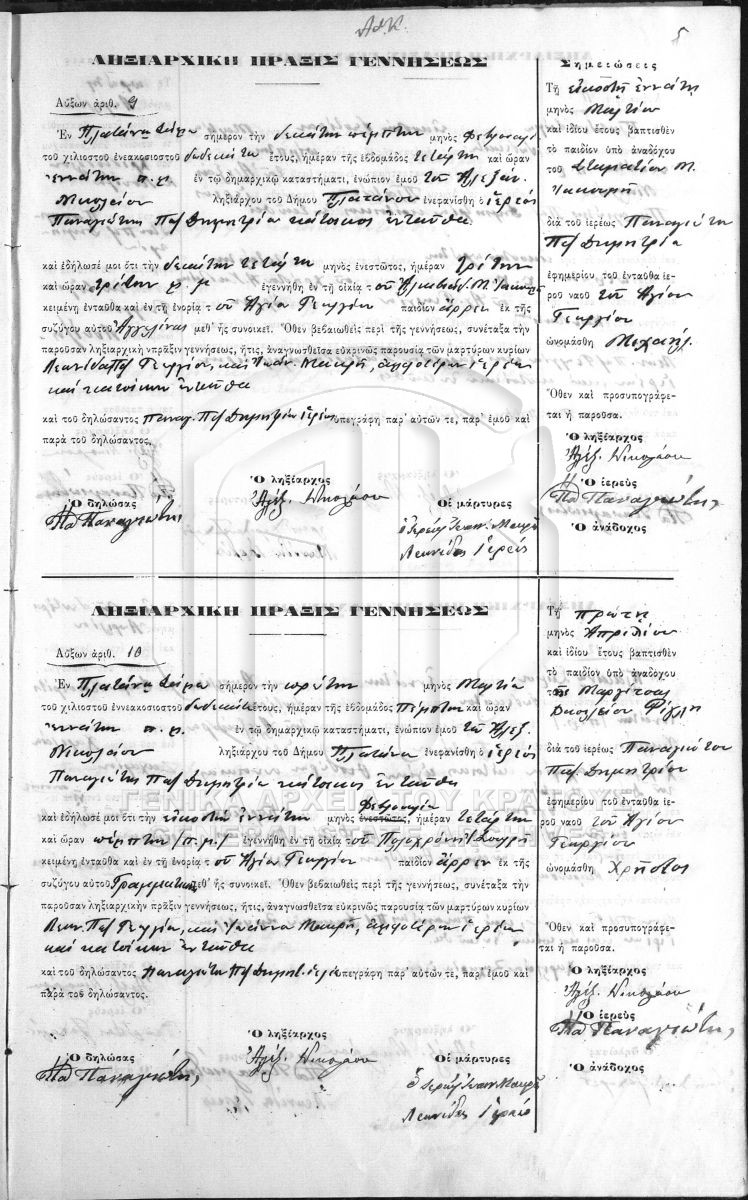 5
ΛΗΞΙΑΡΧΙΚΗ ΠΡΑΞΙΣ ΓΕΝΝΗΣΕΩΣ
Αὔξων ἀριθ. 9
Ἐν Πλατάνῳ σήμερον τὴν δεκάτην πέμπτην μηνὸς Φεβρουαρί
τοῦ χιλιοστοῦ ἐνεακοσιοστοῦ δωδεκάτου ἔτους, ἡμέραν τῆς ἑβδομάδος τετάρτην καὶ ὥραν
ἐννάτην π.μ. ἐν τῷ δημαρχικῷ καταστήματι, ἐνώπιον ἐμοῦ τοῦ Ἀλεξάν.
Νικολάου ληξιάρχου τοῦ Δήμου Πλατάνου ἐνεφανίσθη ὁ ἱερεὺς
Παναγιώτης Παπ Δημητρίου κάτοικος ἐνταῦθα
καὶ ἐδήλωσέ μοι ὅτι τὴν δεκάτην τετάρτην μηνὸς ἐνεστῶτος, ἡμέραν τρίτην
καὶ ὥραν τρίτην μ.μ. ἐγεννήθη ἐν τῇ οἰκίᾳ τοῦ Μ.
κειμένη ἐνταῦθα καὶ ἐν τῇ ἐνορίᾳ τοῦ Ἁγίου Γεωργίου παιδίον ἄρρεν ἐκ τῆς
συζύγου αὐτοῦ Ἀγγελίνας μεθ' ἧς συνοικεῖ. Ὅθεν βεβαιωθεὶς περὶ τῆς γεννήσεως, συνέταξα τὴν
παροῦσαν ληξιαρχικὴ νπρᾶξιν γεννήσεως, ἥτις, ἀναγνωσθεῖσα εὐκρινῶς παρουσίᾳ τῶν μαρτύρων κυρίων
Λεωνίδα Παπ Γεωργίου, καὶ Ἰωάν. Μακρῆ, ἀμφοτέρων ἱερέων
καὶ κατοίκων ἐνταῦθα
καὶ τοῦ δηλώσαντος Παναγ. Παπ Δημητρίου ἱερέως ὑπεγράφη παρ' αὐτῶν τε, παρ' ἐμοῦ καὶ
παρὰ τοῦ δηλώσαντος,
Ὁ δηλώσας
Πα Παναγιώτης
Ὁ ληξίαρχος
Ἀλέξ. Νικολάου
Οἱ μάρτυρες
ὁ Ἱερεὺς Ἰωαν. Μακρῆς
Λεωνίδας Ἱερεύς
Σημειώσεις
Τῇ εἰκοστῇ ἐννάτῃ
μηνὸς Μαρτίου
καὶ ἰδίου ἔτους βαπτισθὲν
τὸ παιδίον ὑπὸ ἀναδόχου
τοῦ Σταματίου Μ.
διὰ τοῦ ἱερέως Παναγιώτου
Παπ Δημητρίου
ἐφημερίου τοῦ ἐνταῦθα ἱε-
ροῦ ναοῦ τοῦ Ἁγίου
Γεωργίου
ὠνομάσθη Μιχαήλ.
Ὅθεν καὶ προσυπογράφε-
ται ἡ παροῦσα.
Ὁ ληξίαρχος
Ἀλέξ. Νικολάου
Ὁ ἱερεὺς
Πα Παναγιώτης
Ὁ ἀνάδοχος
ΛΗΞΙΑΡΧΙΚΗ ΠΡΑΞΙΣ ΓΕΝΝΗΣΕΩΣ
Αὔξων ἀριθ. 10
Ἐν Πλατάνῳ σήμερον τὴν πρώτην μηνὸς Μαρτίου
τοῦ χιλιοστοῦ ἐννεακοσιοστοῦ δωδεκάτου ἔτους, ἡμέραν τῆς ἑβδομάδος πέμπτην καὶ ὥραν
ἐννάτην π.μ. ἐν τῷ δημαρχικῷ καταστήματι, ἐνώπιον ἐμοῦ τοῦ Ἀλεξ.
Νικολάου ληξιάρχου τοῦ Δήμου Πλατάνου ἐνεφανίσθη ὁ ἱερεὺς
Παναγιώτης Παπ Δημητρίου κάτοικος ἐνταῦθα
καὶ ἐδήλωσέ μοι ὅτι τὴν εἰκοστὴν ἐννάτην μηνὸς ἐνεστῶτος, Φεβρουαρίου ἡμέραν τετάρτην
καὶ ὥραν πέμπτην (π.μ.) ἐγεννήθη ἐν τῇ οἰκίᾳ τοῦ Πολυχρόνη
κειμένη ἐνταῦθα καὶ ἐν τῇ ἐνορίᾳ τοῦ Ἁγίου Γεωργίου παιδίον ἄρρεν ἐκ τῆς
συζύγου αὐτοῦ Γραμματικῆς μεθ' ἧς συνοικεῖ. Ὅθεν βεβαιωθεὶς περὶ τῆς γεννήσεως, συνέταξα τὴν
παροῦσαν ληξιαρχικὴν πρᾶξιν γεννήσεως, ἥτις, ἀναγνωσθεῖσα εὐκρινῶς παρουσίᾳ τῶν μαρτύρων κυρίων
Λεων. Παπ Γεωργίου, καὶ Ἰωάννου Μακρῆ, ἀμφοτέρων ἱερέων
καὶ κατοίκων ἐνταῦθα
καὶ τοῦ δηλώσαντος Παναγιώτου Παπ Δημητ. ἱερέως ὑπεγράφη παρ' αὐτῶν τε, παρ' ἐμοῦ καὶ
παρὰ τοῦ δηλώσαντος.
Ὁ δηλώσας
Πα Παναγιώτης
Ὁ ληξίαρχος
Ἀλέξ. Νικολάου
Οἱ μάρτυρες
ὁ Ἱερεὺς Ἰωαν. Μακρῆς
Λεωνίδας Ἱερεύς
Τῇ πρώτῃ
μηνὸς Ἀπριλίου
καὶ ἰδίου ἔτους βαπτισθὲν
τὸ παιδίον ὑπὸ ἀναδόχου
τῆς Μαργίτσας
Νικολάου
διὰ τοῦ ἱερέως Παναγιώτου
Παπ Δημητρίου
ἐφημερίου τοῦ ἐνταῦθα ἱε-
ροῦ ναοῦ τοῦ Ἁγίου
Γεωργίου
ὠνομάσθη Χρῆστος
Ὅθεν καὶ προσυπογράφε-
ται ἡ παροῦσα.
Ὁ ληξίαρχος
Ἀλέξ. Νικολάου
Ὁ ἱερεὺς
Πα Παναγιώτης
Ὁ ἀνάδοχος
ΓΕΝΙΚΑ ΑΡΧΕΙΑ ΤΟΥ ΚΡΑΤΟΥΣ
GENERAL STATE ARCHIVES